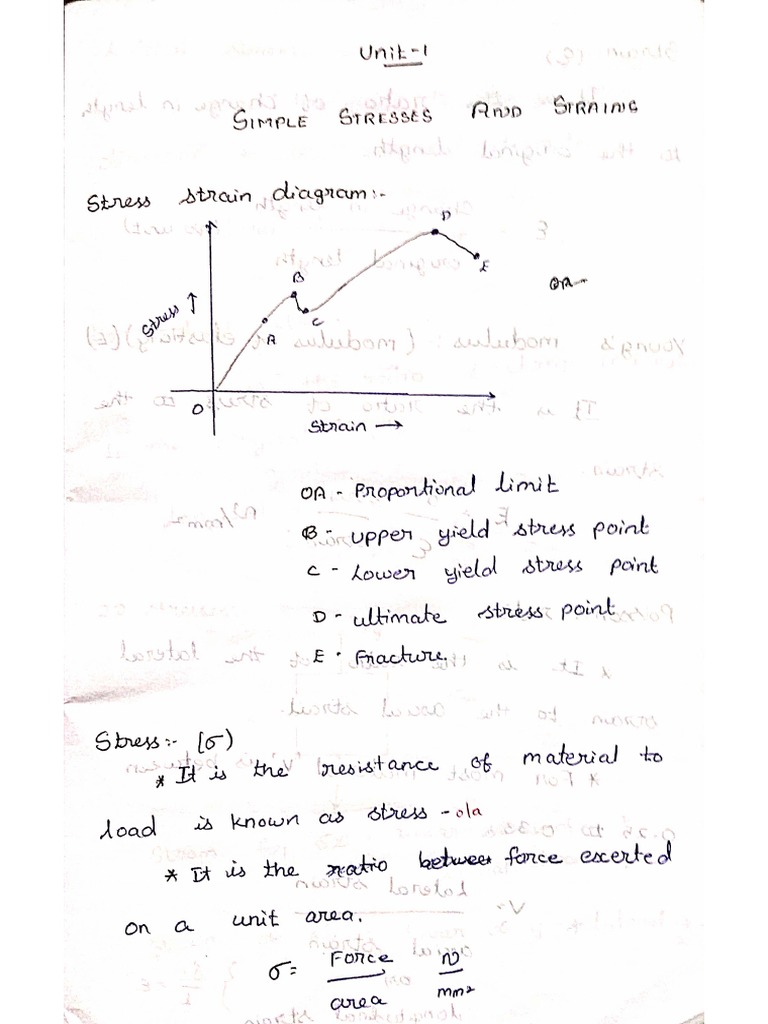 Unit-1
SIMPLE STRESSES AND STRAINS
Stress strain diagram:-
D
B
E
OA-
Stress ↑
C
A
O
Strain →
OA - Proportional limit
B - upper yield stress point
C - Lower yield stress point
D - ultimate stress point
E - Fracture.
Stress:- (σ)
* It is the resistance of material to
load is known as stress -
* It is the ratio between force excerted
on a unit area.
σ = Force/area N/mm²